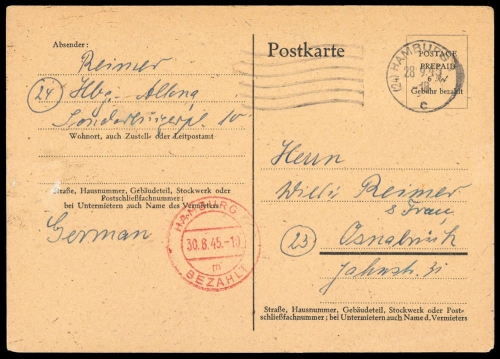 Absender:
Reimer
(24) Hbg. Altona
Wohnort, auch Zustell- oder Leitpostamt
Straße, Hausnummer, Gebäudeteil, Stockwerk oder
Postschließfachnummer;
bei Untermietern auch Name des Vermieters
German
HAMBURG
30.8.45.-10
m
BEZAHLT
Postkarte
(24) HAMBURG
28.9.
c
POSTAGE
PREPAID
6
Gebühr bezahlt
Herrn
Willi Reimer
& Frau
(23) Osnabrück
Jahnstr. 31
Straße, Hausnummer, Gebäudeteil, Stockwerk oder Post-
schließfachnummer; bei Untermietern auch Name d. Vermieters